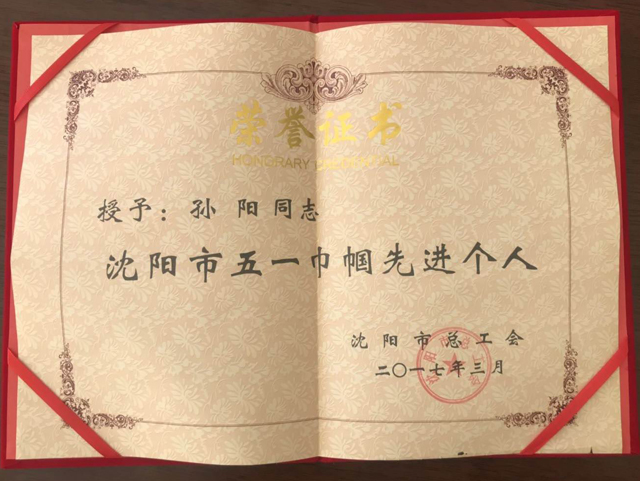 荣誉证书
HONORARY CREDENTIAL
授予：孙 阳同志
沈阳市五一巾帼先进个人
沈阳市总工会
二〇一七年三月